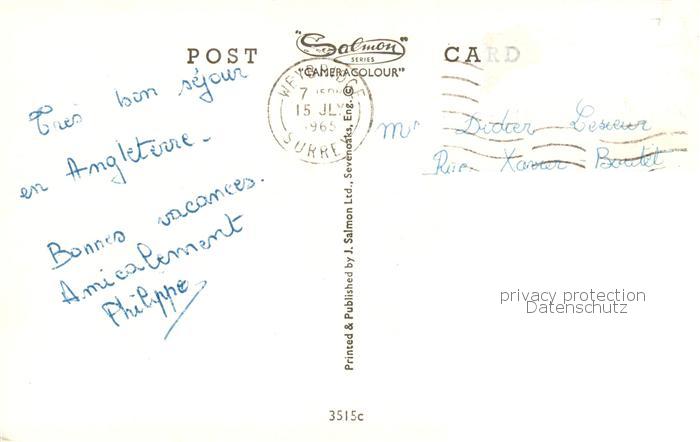 POST CARD
"Salmon" SERIES
"CAMERACOLOUR"
WEYBRIDGE
15 JLY
1965
SURREY
Très bon séjour
en Angleterre -
Bonnes vacances.
Amicalement
Philippe
Mr Didier Lesieur
Rue Xavier Boutet
Printed & Published by J. Salmon Ltd., Sevenoaks, Eng. ©
privacy protection
Datenschutz
3515c